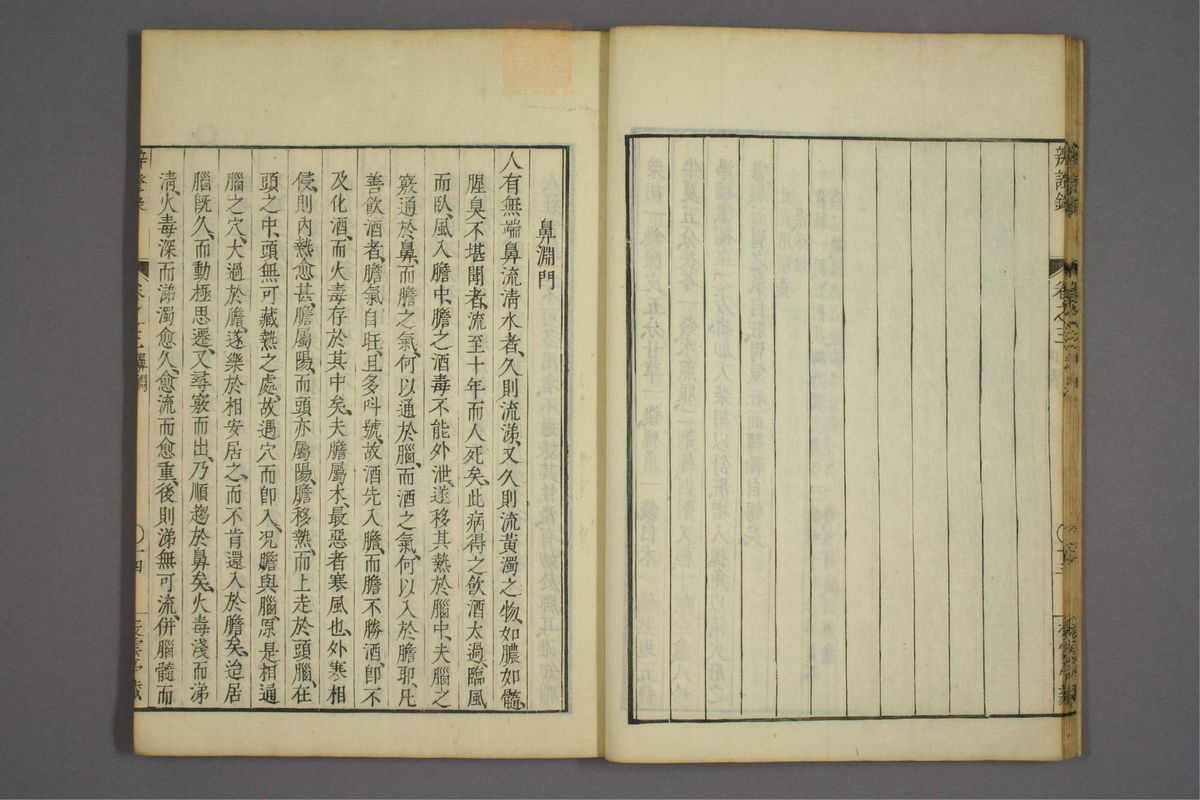 辨證錄 卷之三 十三
鼻淵門
人有無端鼻流清水者、久則流涕、又久則流黃濁之物、如膿如髓、
腥臭不堪聞者、流至十年而人死矣、此病得之飲酒太過、臨風
而臥、風入膽中、膽之酒毒不能外泄、遂移其熱於腦中、夫腦之
竅通於鼻、而膽之氣、何以通於腦、而酒之氣、何以入於膽耶、凡
善飲酒者、膽氣自旺、且多呌號、故酒先入膽、而膽不勝酒、卽不
及化酒、而火毒存於其中矣、夫膽屬木、最惡者寒風也、外寒相
侵、則內熱愈甚、膽屬陽、而頭亦屬陽、膽移熱、而上走於頭腦、在
頭之中、頭無可藏熱之處、故遇穴而卽入、況膽與腦、原是相通
腦之穴、大過於膽、遂樂於相安居之、而不肯還入於膽矣、迨居
腦既久、而動極思遷、又尋竅而出、乃順趨於鼻矣、火毒淺而涕
清、火毒深而涕濁、愈久、愈流而愈重、後則涕無可流、併腦髓而
卷之三 鼻淵 十四